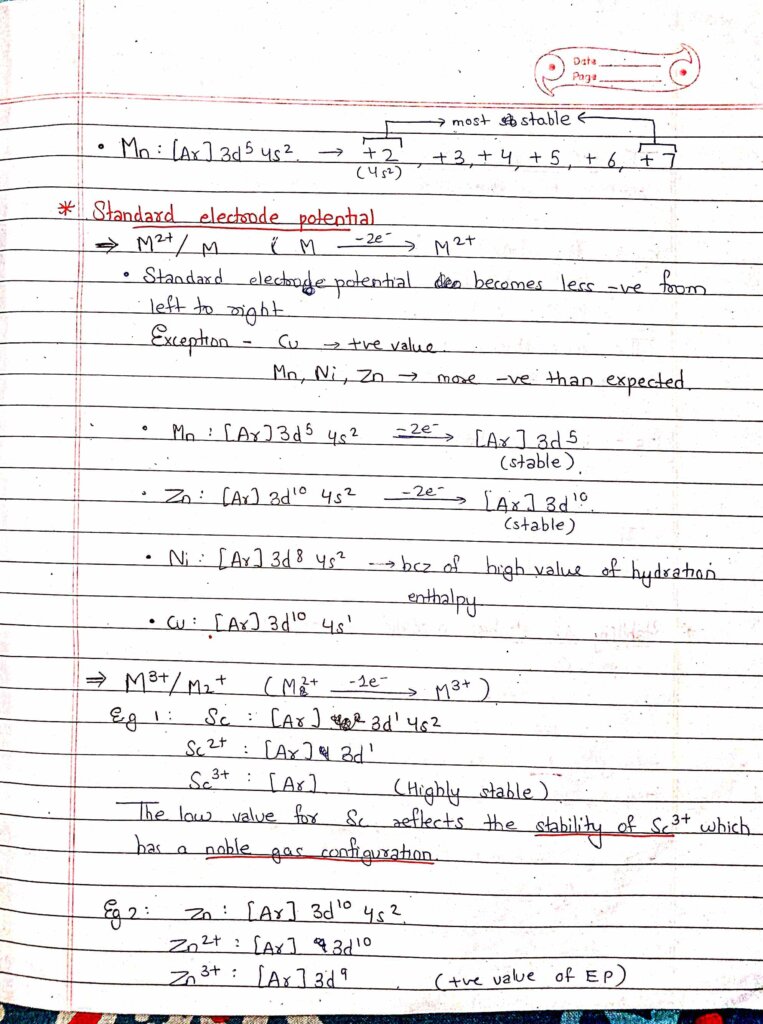 Date
Page
most stable
• Mn : [Ar] 3d⁵ 4s² → +2, +3, +4, +5, +6, +7
(4s²)
* Standard electrode potential
⇒ M²⁺/ M ( M -2e⁻→ M²⁺
• Standard electrode potential becomes less -ve from
left to right
Exception - Cu → +ve value
Mn, Ni, Zn → more -ve than expected.
• Mn : [Ar] 3d⁵ 4s² -2e⁻→ [Ar] 3d⁵
(stable).
• Zn : [Ar] 3d¹⁰ 4s² -2e⁻→ [Ar] 3d¹⁰.
(stable)
• Ni : [Ar] 3d⁸ 4s² → bcz of high value of hydration
enthalpy
• Cu : [Ar] 3d¹⁰ 4s¹
⇒ M³⁺/M₂⁺ (M²⁺ -1e⁻→ M³⁺)
Eg 1: Sc : [Ar] 3d¹ 4s²
Sc²⁺ : [Ar] 3d¹
Sc³⁺ : [Ar] (Highly stable)
The low value for Sc reflects the stability of Sc³⁺ which
has a noble gas configuration.
Eg 2: Zn : [Ar] 3d¹⁰ 4s².
Zn²⁺ : [Ar] 3d¹⁰
Zn³⁺ : [Ar] 3d⁹ (+ve value of EP)